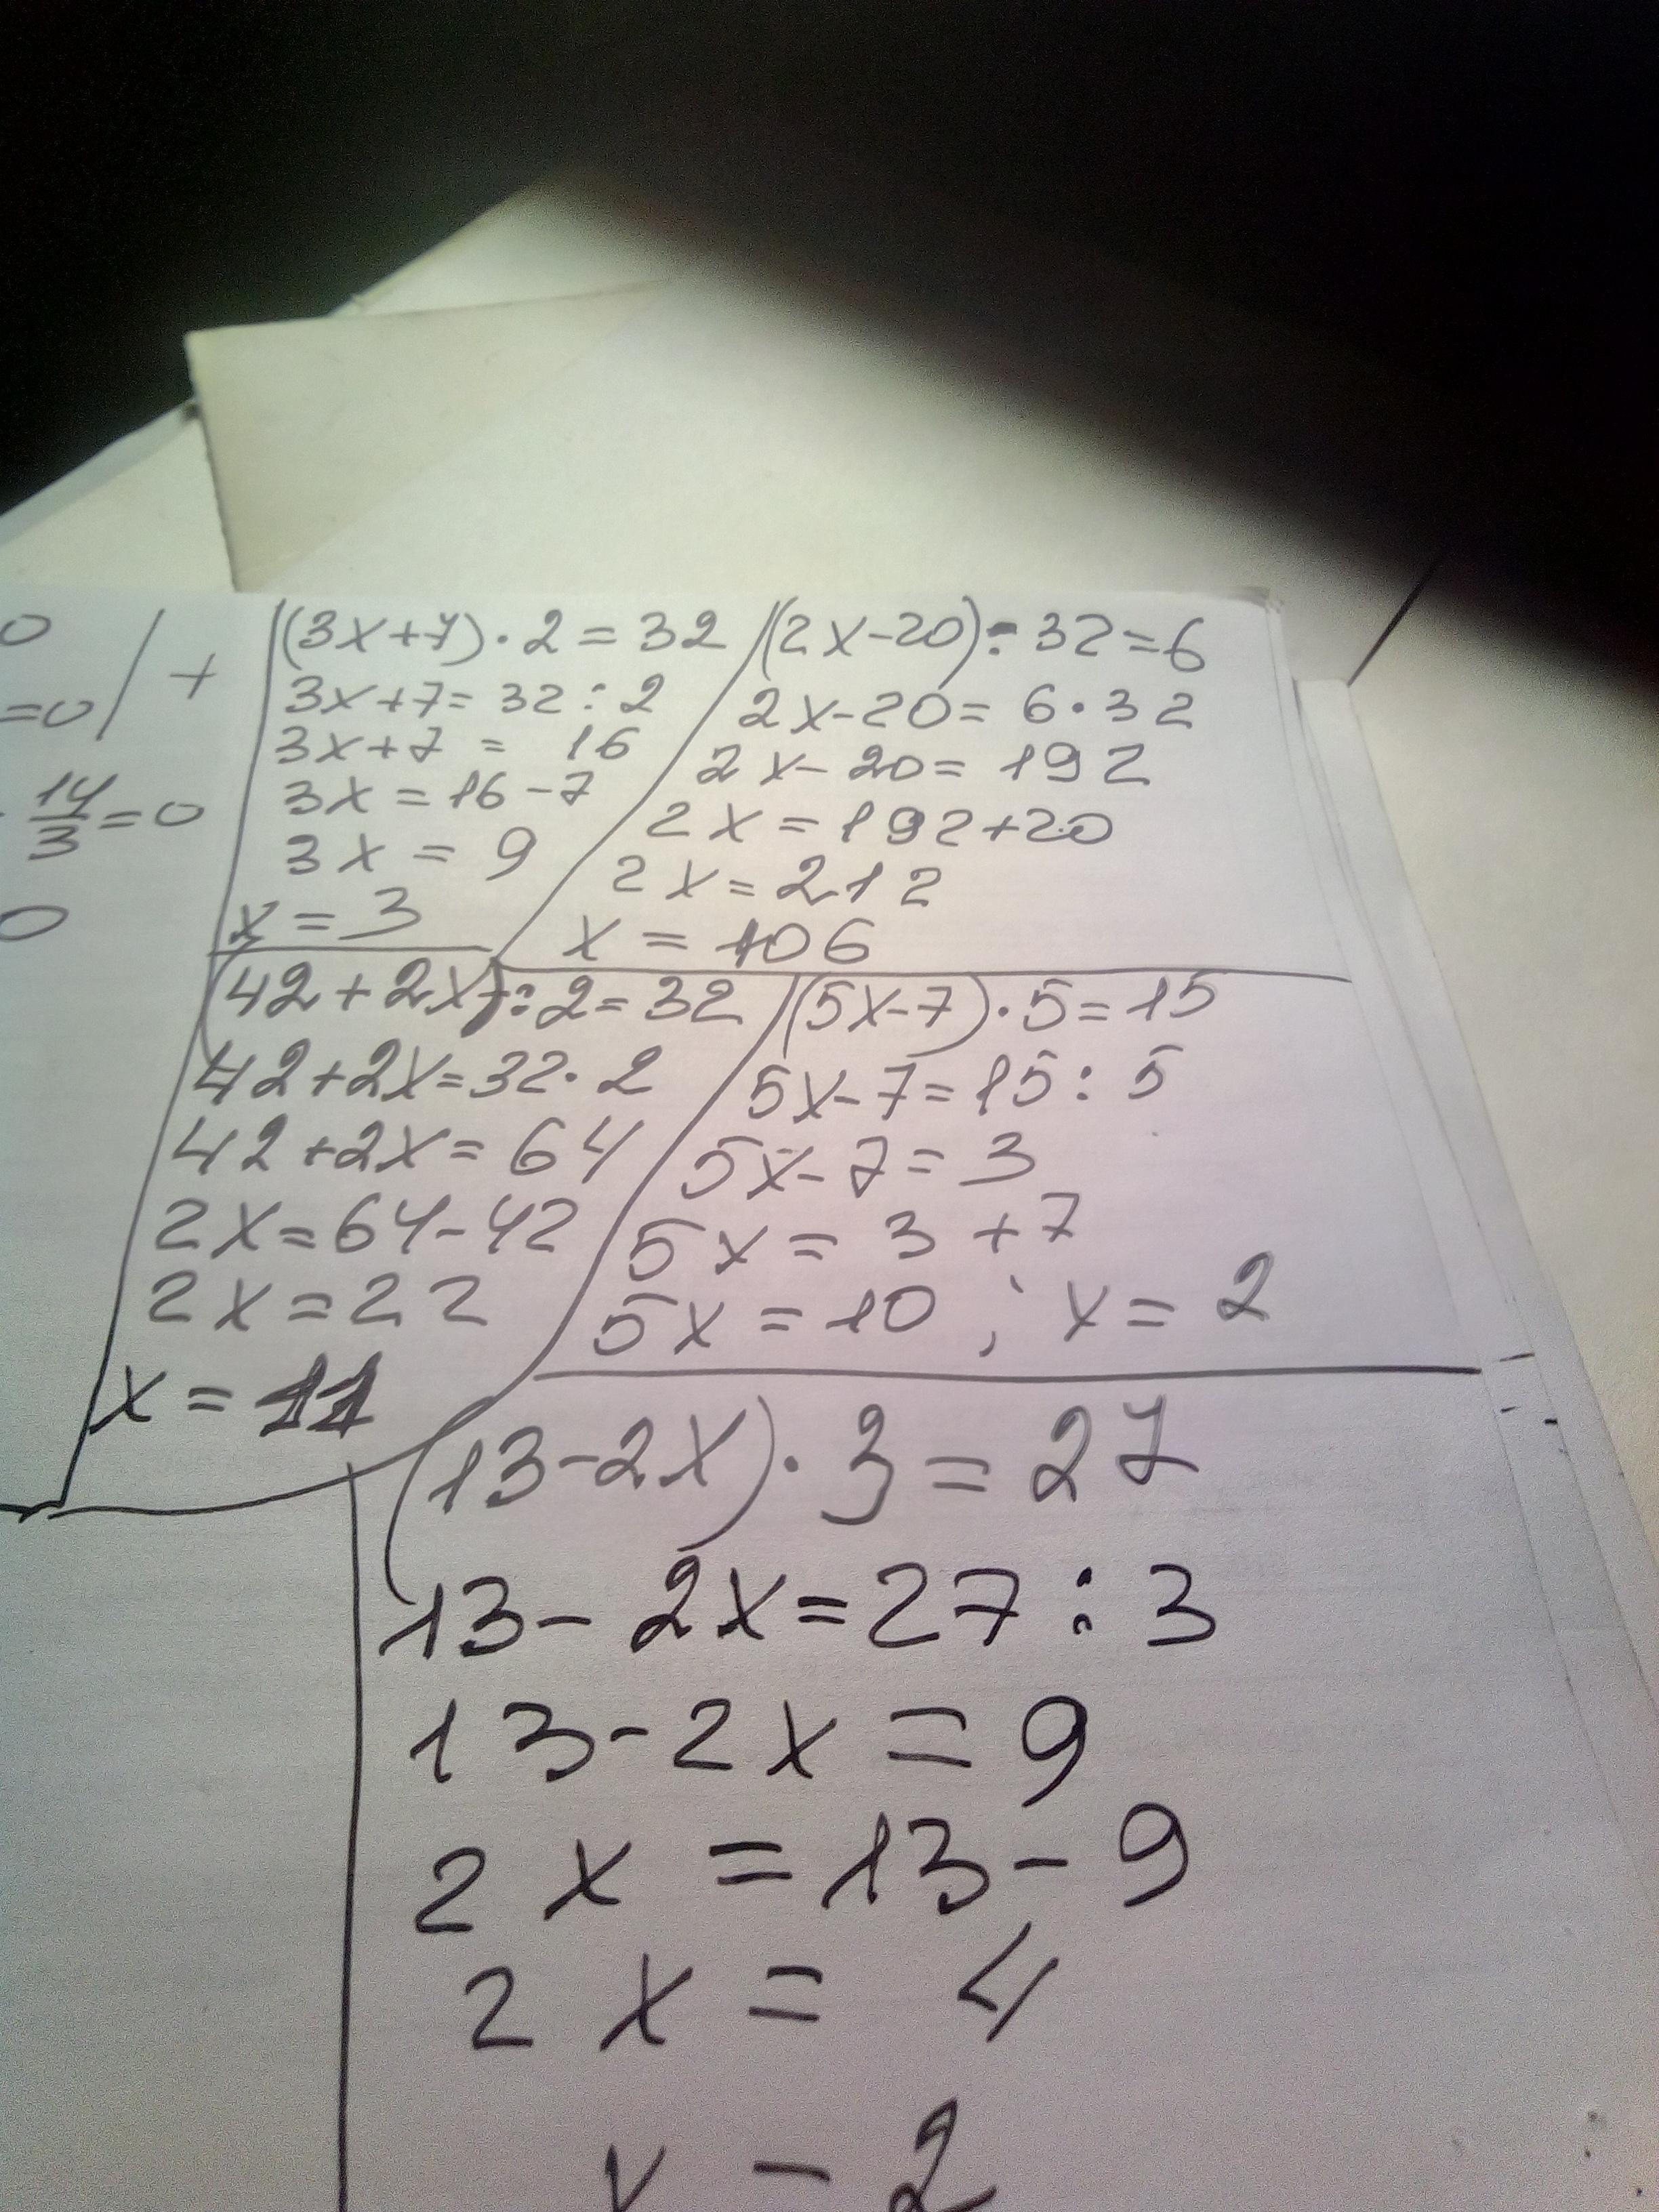 0
=0
+
14/3=0
0
(3x+7)·2=32
3x+7=32:2
3x+7=16
3x=16-7
3x=9
x=3
(2x-20):32=6
2x-20=6·32
2x-20=192
2x=192+20
2x=212
x=106
(42+2x):2=32
42+2x=32·2
42+2x=64
2x=64-42
2x=22
x=11
(5x-7)·5=15
5x-7=15:5
5x-7=3
5x=3+7
5x=10; x=2
(13-2x)·3=27
13-2x=27:3
13-2x=9
2x=13-9
2x=4
x=2